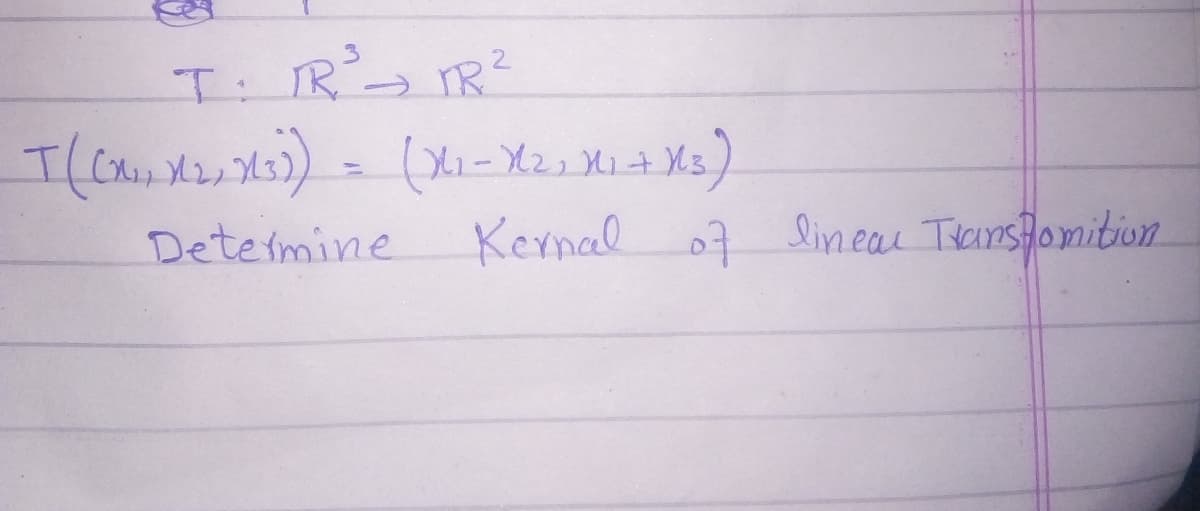 T : ℝ³ → ℝ²
T((x₁, x₂, x₃)) = (x₁ - x₂, x₁ + x₃)
Determine Kernal of linear Transfomition